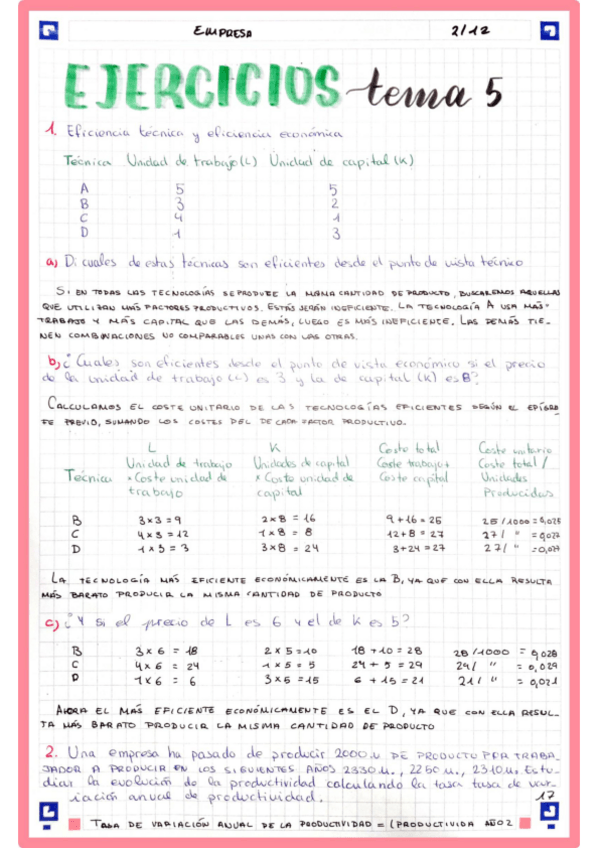 EMPRESA 2/12
EJERCICIOS tema 5
1. Eficiencia técnica y eficiencia económica
Técnica Unidad de trabajo (L) Unidad de capital (K)
A 5 5
B 3 2
C 4 1
D 1 3
a) Di cuales de estas técnicas son eficientes desde el punto de vista técnico
SI EN TODAS LAS TECNOLOGÍAS SE PRODUCE LA MISMA CANTIDAD DE PRODUCTO, BUSCAREMOS AQUELLAS
QUE UTILIZAN MÁS FACTORES PRODUCTIVOS. ESTÁS SERÁN INEFICIENTE. LA TECNOLOGÍA A USA MÁS
TRABAJO Y MÁS CAPITAL QUE LAS DEMÁS, LUEGO ES MÁS INEFICIENTE. LAS DEMÁS TIE-
NEN COMBINACIONES NO COMPARABLES UNAS CON LAS OTRAS.
b) ¿Cuales son eficientes desde el punto de vista económico si el precio
de la unidad de trabajo (L) es 3 y la de capital (K) es 8?
CALCULAMOS EL COSTE UNITARIO DE LAS TECNOLOGÍAS EFICIENTES SEGÚN EL EPÍGRA
FE PREVIO, SUMANDO LOS COSTES DEL DE CADA FACTOR PRODUCTIVO.
L K Coste total Coste unitario
Unidad de trabajo Unidades de capital Coste trabajo + Coste total /
Técnica × Coste unidad de × Coste unidad de Coste capital Unidades
trabajo capital Producidas
B 3×3 = 9 2×8 = 16 9+16 = 25 25/1000 = 0,025
C 4×3 = 12 1×8 = 8 12+8 = 27 27/ " = 0,027
D 1×3 = 3 3×8 = 24 3+24 = 27 27/ " = 0,027
LA TECNOLOGÍA MÁS EFICIENTE ECONÓMICAMENTE ES LA B, YA QUE CON ELLA RESULTA
MÁS BARATO PRODUCIR LA MISMA CANTIDAD DE PRODUCTO
c) ¿Y si el precio de L es 6 y el de K es 5?
B 3×6 = 18 2×5 = 10 18+10 = 28 28/1000 = 0,028
C 4×6 = 24 1×5 = 5 24+5 = 29 29/ " = 0,029
D 1×6 = 6 3×5 = 15 6+15 = 21 21/ " = 0,021
AHORA EL MÁS EFICIENTE ECONÓMICAMENTE ES EL D, YA QUE CON ELLA RESUL-
TA MÁS BARATO PRODUCIR LA MISMA CANTIDAD DE PRODUCTO
2. Una empresa ha pasado de producir 2000 u DE PRODUCTO POR TRABA-
JADOR A PRODUCIR EN LOS SIGUIENTES AÑOS 2330 u., 2250 u., 2310 u. Estu-
diar la evolución de la productividad calculando la tasa tasa de var-
iación anual de productividad. 17
TASA DE VARIACIÓN ANUAL DE LA PRODUCTIVIDAD = (PRODUCTIVIDA AÑO 2